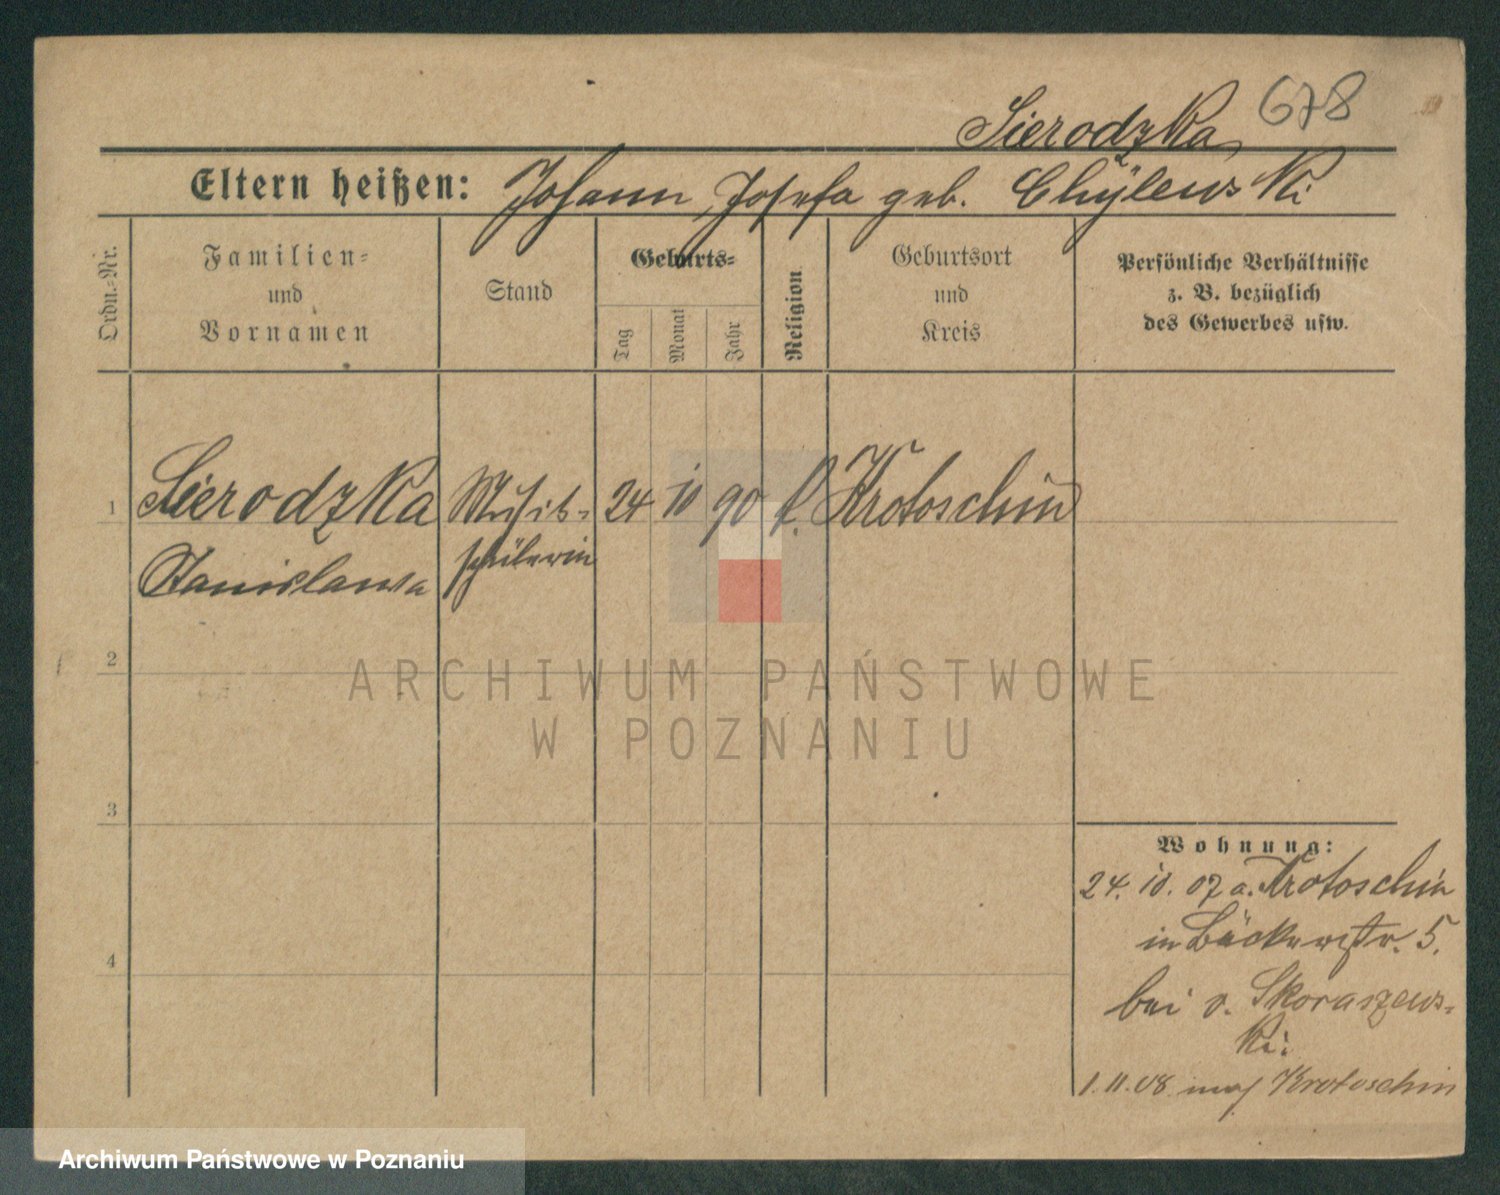 Sierodzka 678
Eltern heißen: Johann, Josefa geb. Chÿlewski
Ordn.-Nr.
Familien-
und
Vornamen
Stand
Geburts-
Tag
Monat
Jahr
Religion
Geburtsort
und
Kreis
Persönliche Verhältnisse
z. B. bezüglich
des Gewerbes usw.
1 Sierodzka Musik- 24 10 90 k. Krotoschin
Stanislawa schülerin
2
3
4
Wohnung:
24. 10. 07 a. Krotoschin
in Bäckerstr. 5.
bei v. Skoraszews-
ki.
1. 11. 08 nach Krotoschin
ARCHIWUM PAŃSTWOWE
W POZNANIU
Archiwum Państwowe w Poznaniu